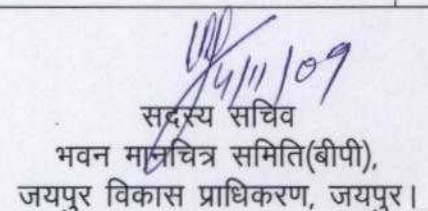 4/11/09
सदस्य सचिव
भवन मानचित्र समिति(बीपी),
जयपुर विकास प्राधिकरण, जयपुर।